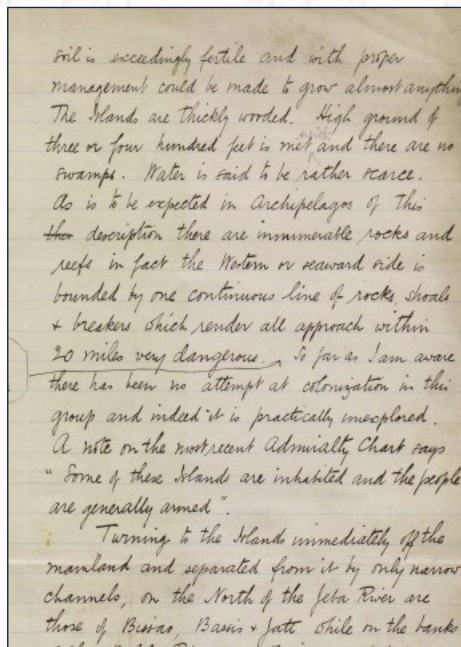 soil is exceedingly fertile and with proper
management could be made to grow almost anything
The Islands are thickly wooded. High ground of
three or four hundred feet is met and there are no
swamps. Water is said to be rather scarce.
As is to be expected in Archipelagos of this
description there are innumerable rocks and
reefs in fact the Western or seaward side is
bounded by one continuous line of rocks, shoals
+ breakers which render all approach within
20 miles very dangerous. So far as I am aware
there has been no attempt at colonization in this
group and indeed it is practically unexplored.
A note on the most recent Admiralty Chart says
"Some of these Islands are inhabited and the people
are generally armed".
Turning to the Islands immediately off the
mainland and separated from it by only narrow
channels, on the North of the Jeba River are
those of Bissao, Bassis + Jatt while on the banks